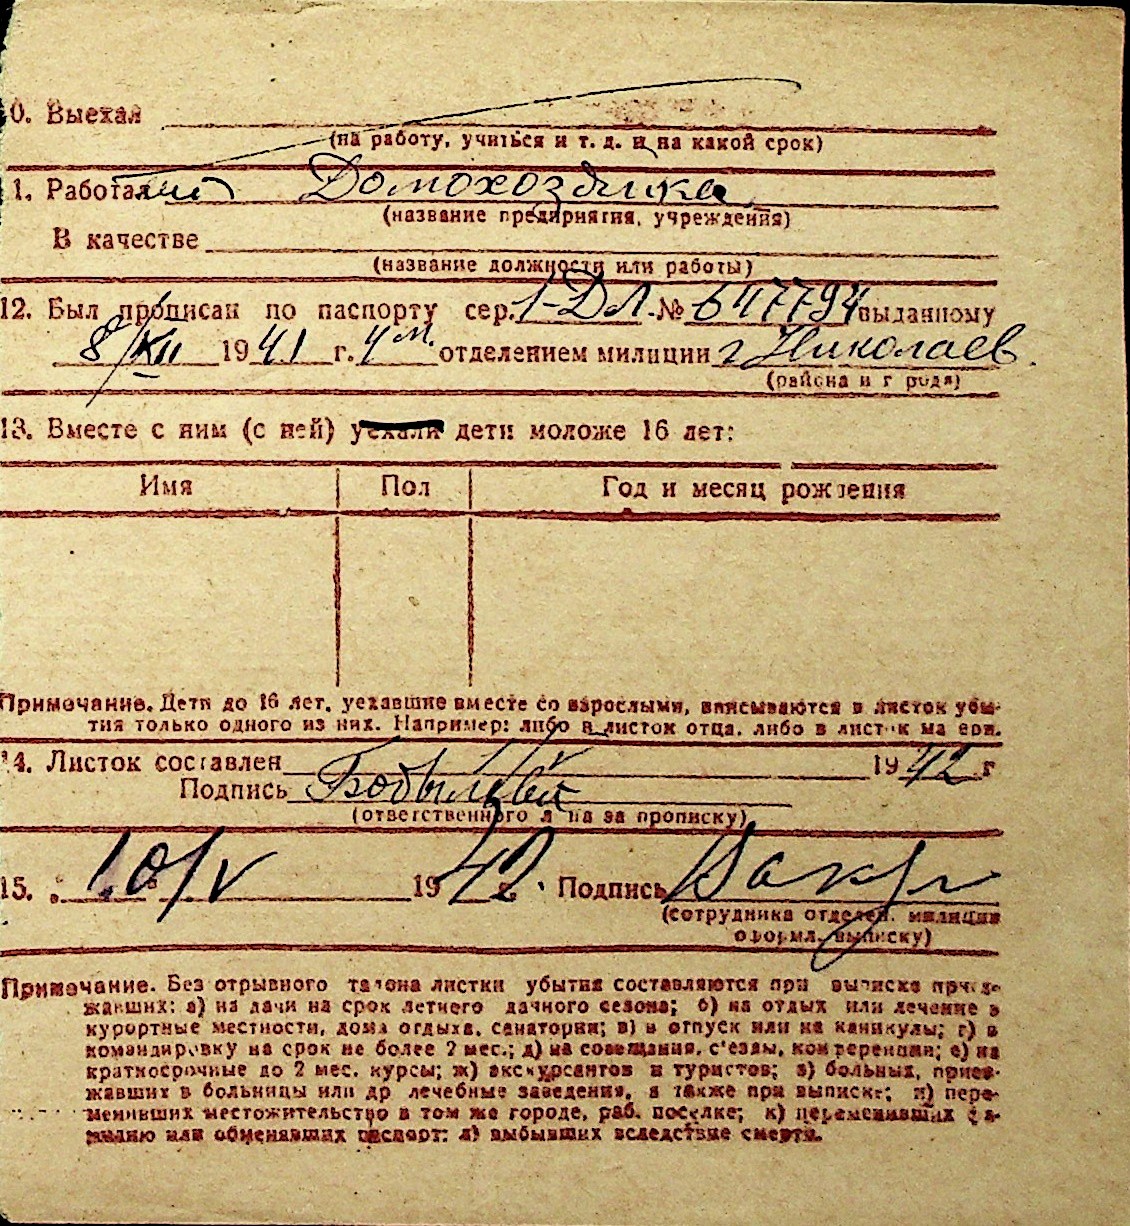 0. Выехал
(на работу, учиться и т. д. и на какой срок)
1. Работал Домохозяйка
(название предприятия, учреждения)
В качестве
(название должности или работы)
12. Был прописан по паспорту сер. 1-ДЛ. № 647794 выданному
8/XII 1941 г. 4м. отделением милиции г. Николаев.
(района и города)
13. Вместе с ним (с ней) уехали дети моложе 16 лет:
Имя Пол Год и месяц рождения
Примечание. Дети до 16 лет, уехавшие вместе со взрослыми, вписываются в листок убы-
тия только одного из них. Например: либо в листок отца, либо в листок матери.
14. Листок составлен 1942 г
Подпись
(ответственного лица за прописку)
15. „10/V 1942 г. Подпись
(сотрудника отделен. милиции
оформл. выписку)
Примечание. Без отрывного талона листки убытия составляются при выписке приез-
жавших: а) на дачи на срок летнего дачного сезона; б) на отдых или лечение в
курортные местности, дома отдыха, санатории; в) в отпуск или на каникулы; г) в
командировку на срок не более 2 мес.; д) на совещания, с'езды, конференции; е) на
краткосрочные до 2 мес. курсы; ж) экскурсантов и туристов; з) больных, приез-
жавших в больницы или др лечебные заведения, а также при выписке; и) пере-
менивших местожительство в том же городе, раб. поселке; к) переменивших фа-
милию или обменявших паспорт; л) выбывших вследствие смерти.